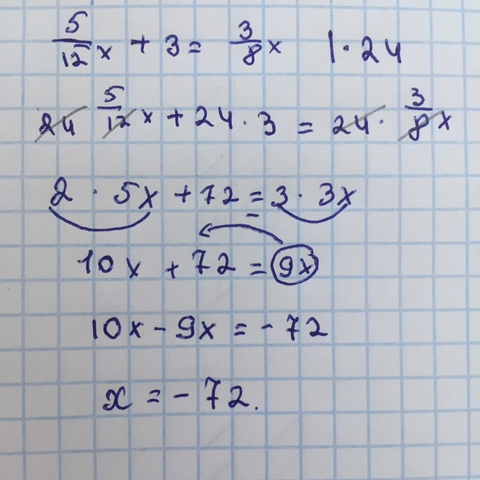 5/12 x + 3 = 3/8 x | · 24
24 5/12 x + 24 · 3 = 24 · 3/8 x
2 · 5x + 72 = 3 · 3x
10x + 72 = 9x
10x - 9x = - 72
x = - 72.